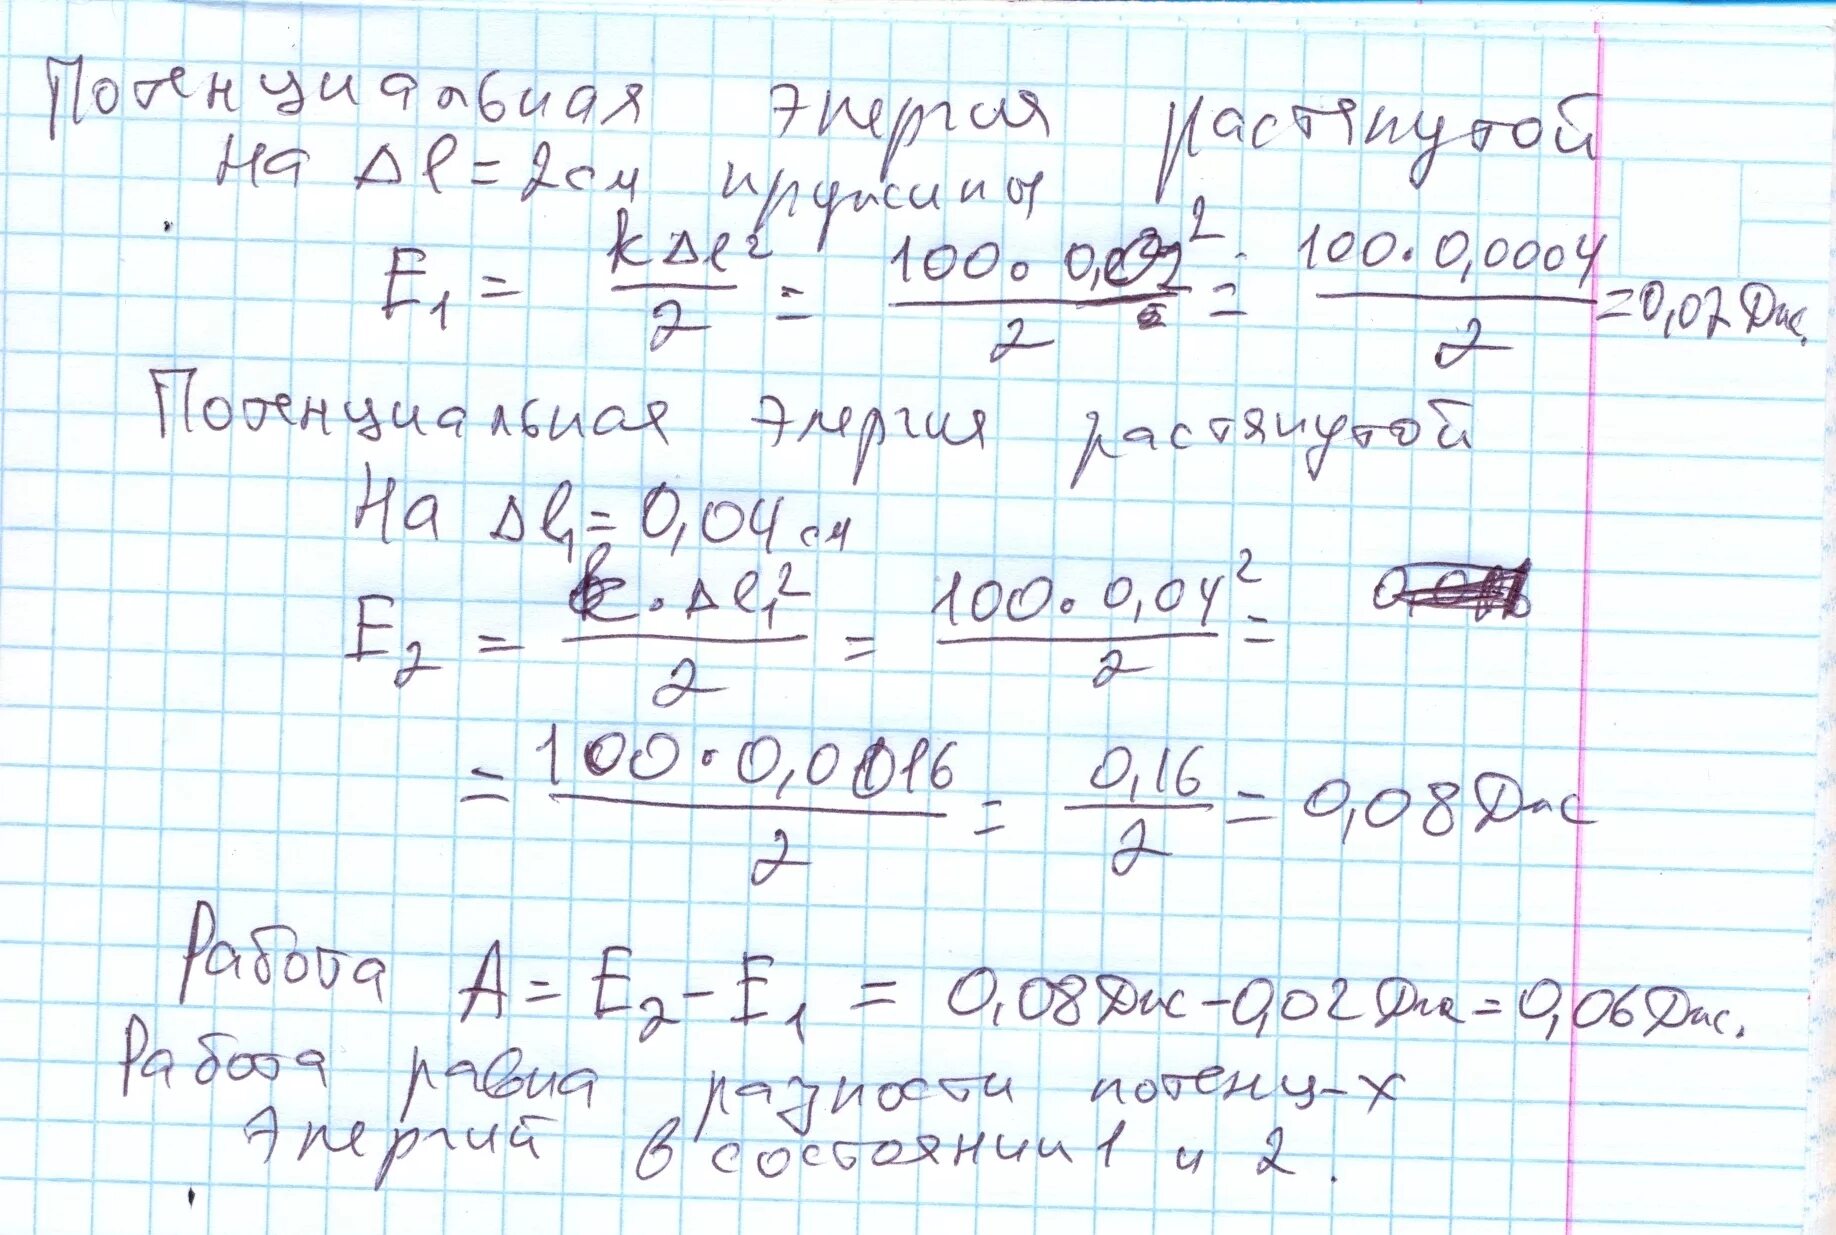 Потенциальная энергия растянутой
на Δl = 2см пружины
E₁ = kΔl²/2 = 100·0,02²/2 = 100·0,0004/2 = 0,02 Дж.
Потенциальная энергия растянутой
на Δl₁ = 0,04 см
E₂ = k·Δl₁²/2 = 100·0,04²/2 =
= 100·0,0016/2 = 0,16/2 = 0,08 Дж
Работа A = E₂ - E₁ = 0,08 Дж - 0,02 Дж = 0,06 Дж.
Работа равна разности потенц-х
энергий в состоянии 1 и 2.